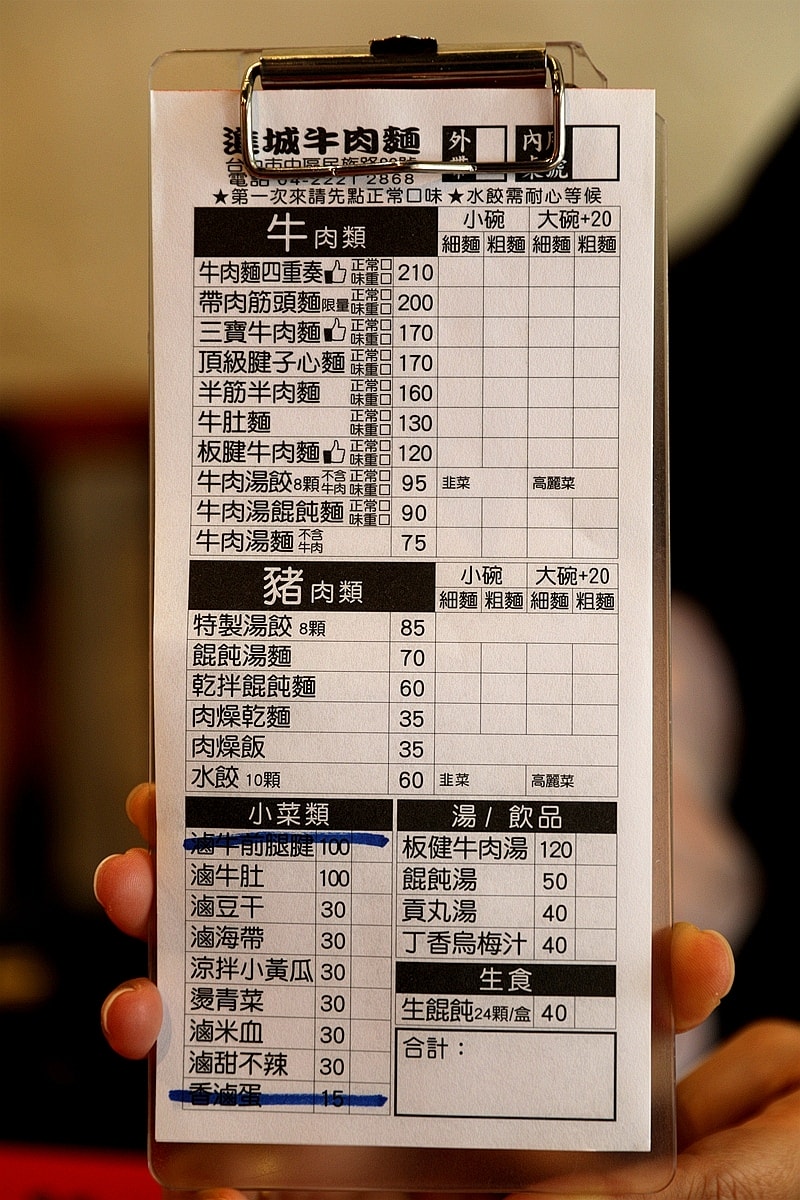 城牛肉麵 外 內
台中市中區民族路
電話 04-2221 2868
★第一次來請先點正常口味 ★水餃需耐心等候
牛肉類 小碗 大碗+20
細麵 粗麵 細麵 粗麵
牛肉麵四重奏 正常□ 味重□ 210
帶肉筋頭麵 限量 正常□ 味重□ 200
三寶牛肉麵 正常□ 味重□ 170
頂級腱子心麵 正常□ 味重□ 170
半筋半肉麵 正常□ 味重□ 160
牛肚麵 正常□ 味重□ 130
板腱牛肉麵 正常□ 味重□ 120
牛肉湯餃 8顆 不含牛肉 正常□ 味重□ 95 韭菜 高麗菜
牛肉湯餛飩麵 正常□ 味重□ 90
牛肉湯麵 不含牛肉 75
豬肉類 小碗 大碗+20
細麵 粗麵 細麵 粗麵
特製湯餃 8顆 85
餛飩湯麵 70
乾拌餛飩麵 60
肉燥乾麵 35
肉燥飯 35
水餃 10顆 60 韭菜 高麗菜
小菜類
滷牛前腿腱 100
滷牛肚 100
滷豆干 30
滷海帶 30
涼拌小黃瓜 30
燙青菜 30
滷米血 30
滷甜不辣 30
香滷蛋 15
湯 / 飲品
板健牛肉湯 120
餛飩湯 50
貢丸湯 40
丁香烏梅汁 40
生食
生餛飩 24顆/盒 40
合計：